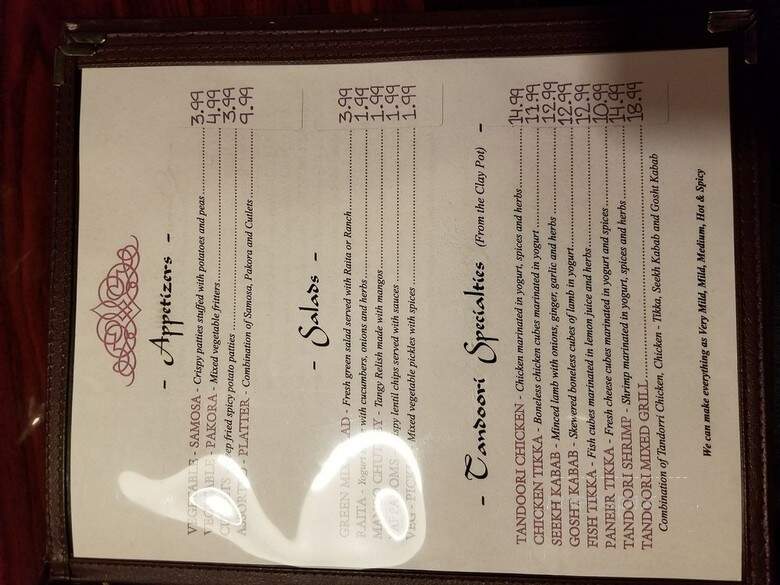 - Appetizers -
VEGETABLE - SAMOSA - Crispy patties stuffed with potatoes and peas 3.99
VEGETABLE - PAKORA - Mixed vegetable fritters 4.99
fried spicy potato patties 3.99
ASSORTED - PLATTER - Combination of Samosa, Pakora and Cutlets 9.99
- Salads -
GREEN - Fresh green salad served with Raita or Ranch 3.99
RAITA - Yogurt with cucumbers, onions and herbs 1.99
MANGO CHUTNEY - Tangy Relish made with mangos 1.99
lentil chips served with sauces 1.99
VEG - Mixed vegetable pickles with spices 1.99
- Tandoori Specialties (From the Clay Pot) -
TANDOORI CHICKEN - Chicken marinated in yogurt, spices and herbs 14.99
CHICKEN TIKKA - Boneless chicken cubes marinated in yogurt 11.99
SEEKH KABAB - Minced lamb with onions, ginger, garlic and herbs 12.99
GOSHT KABAB - Skewered boneless cubes of lamb in yogurt 12.99
FISH TIKKA - Fish cubes marinated in lemon juice and herbs 12.99
PANEER TIKKA - Fresh cheese cubes marinated in yogurt and spices 10.99
TANDOORI SHRIMP - Shrimp marinated in yogurt, spices and herbs 14.99
TANDOORI MIXED GRILL 18.99
Combination of Tandorri Chicken, Chicken - Tikka, Seekh Kabab and Gosht Kabab
We can make everything as Very Mild, Mild, Medium, Hot & Spicy